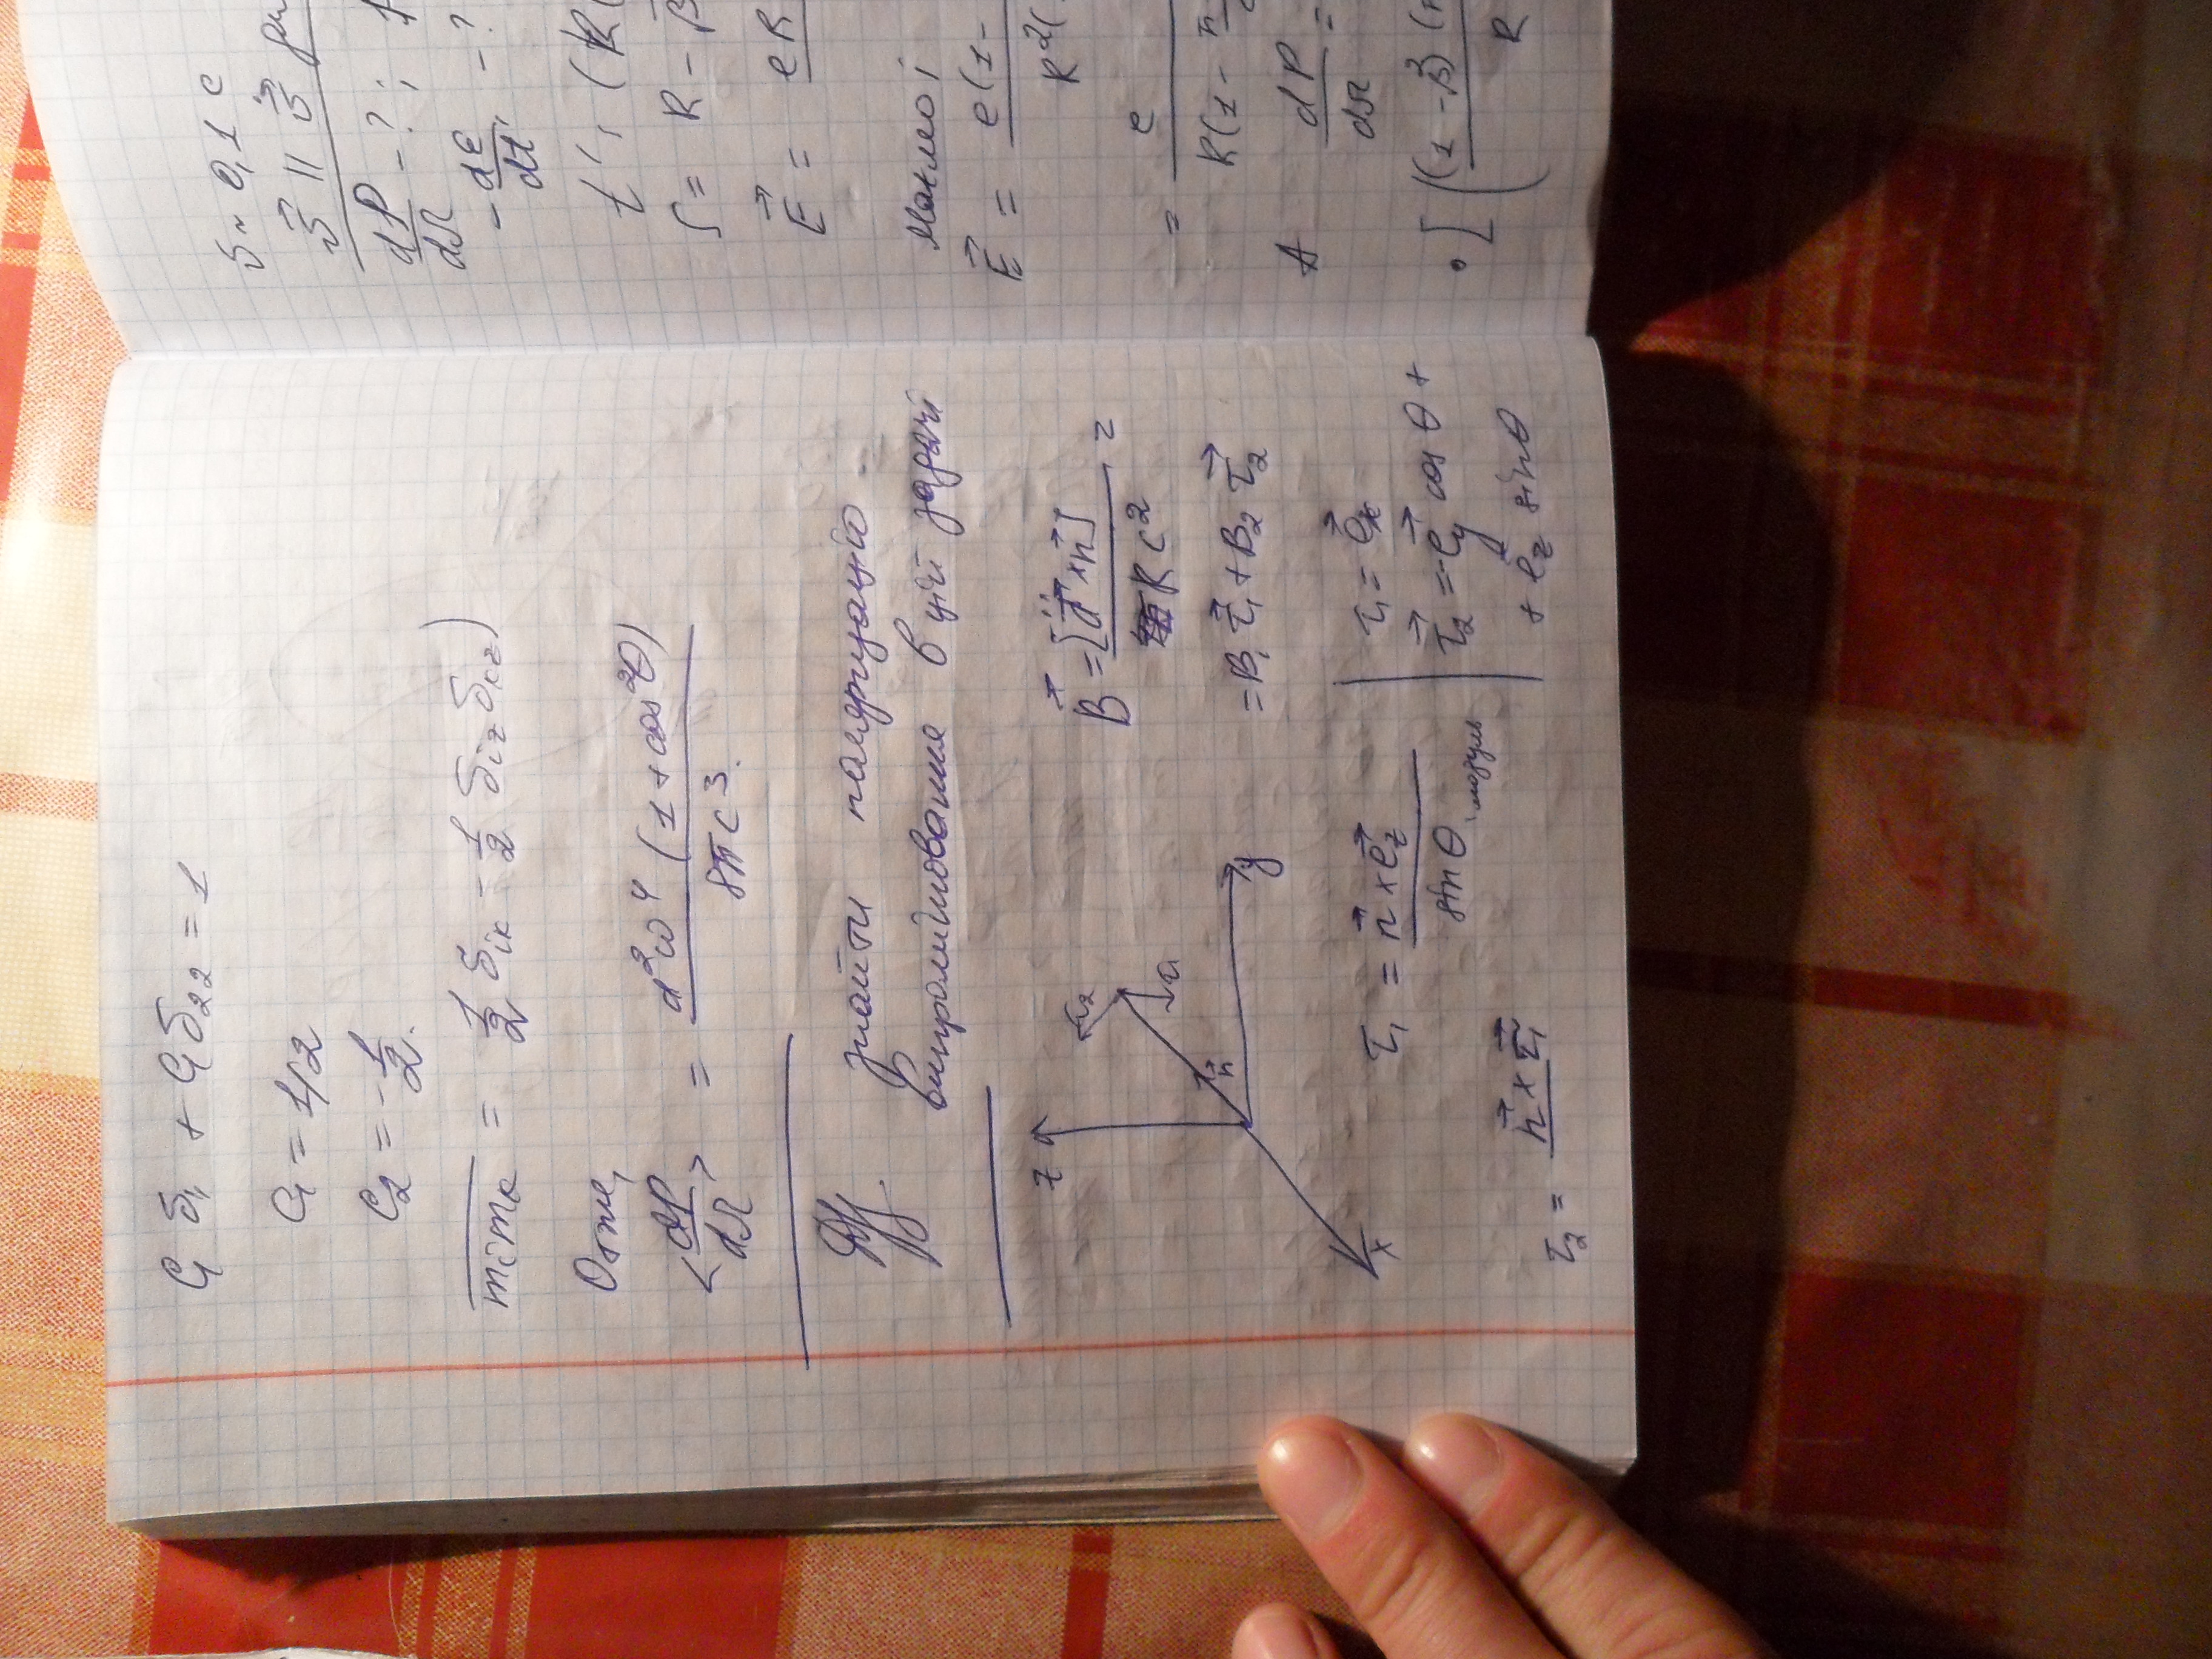 C₁ δ₁₁ + C₁ δ₂₂ = 1
C₁ = 1/2
C₂ = -1/2.
mᵢmₖ = 1/2 δᵢₖ - 1/2 δᵢz δₖz)
Отже,
<dP/dΩ> = d²ω⁴ (1 + cos²θ) / 8πc³.
ДЗ. Знайти поляризацію
випромінювання в цій задачі
z
y
x
n⃗
τ⃗₂
τ⃗₁
B⃗ = [d̈⃗ × n⃗] / Rc² =
= B₁ τ⃗₁ + B₂ τ⃗₂
τ₁ = n⃗ × e⃗z / sin θ
модуль
τ₁ = e⃗x
τ⃗₂ = -e⃗y cos θ +
+ e⃗z sin θ
τ₂ = n⃗ × τ⃗₁
v ~ 0,1 c
v⃗ || v̇⃗
dP/dΩ - ? ;
- dε/dt' - ?
t', (R(
= R -
E⃗ = eR
Маємо;
E⃗ = e(1- / R²(
= e / R(1 - n⃗
А dP/dΩ =
• [ ((1 - β²) (n / R